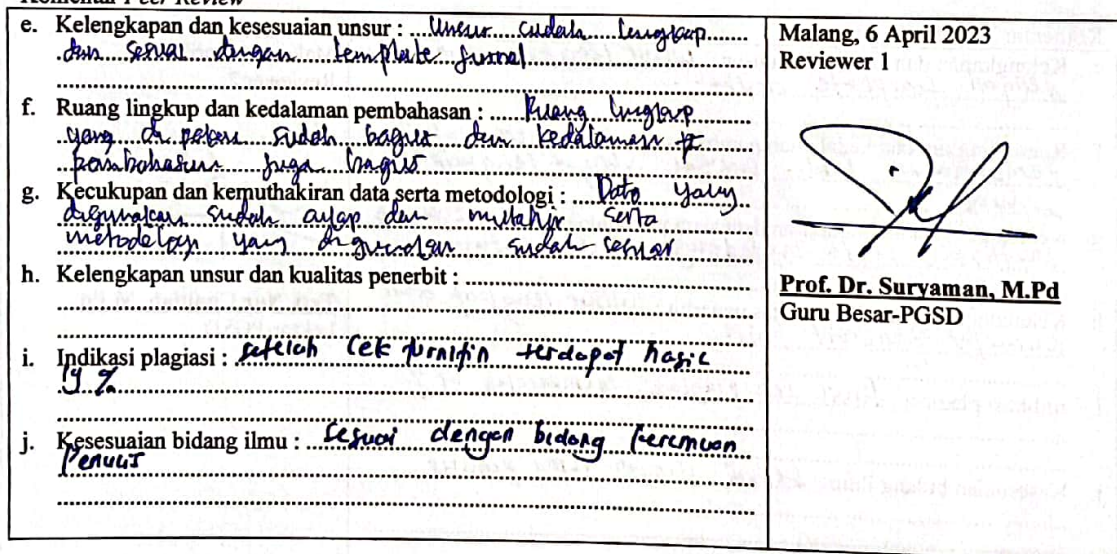 Komentar Peer Review
e. Kelengkapan dan kesesuaian unsur : Unsur sudah lengkap
dan sesuai dengan template jurnal
f. Ruang lingkup dan kedalaman pembahasan : Ruang lingkup
yang di sudah bagus dan kedalaman
pembahasan juga bagus
g. Kecukupan dan kemuthakiran data serta metodologi : Data yang
digunakan sudah cukup dan mutahir serta
metodologi yang digunakan sudah sesuai
h. Kelengkapan unsur dan kualitas penerbit :
i. Indikasi plagiasi : setelah cek turnitin terdapat hasil
19 %
j. Kesesuaian bidang ilmu : Sesuai dengan bidang
Penulis
Malang, 6 April 2023
Reviewer 1
Prof. Dr. Suryaman, M.Pd
Guru Besar-PGSD